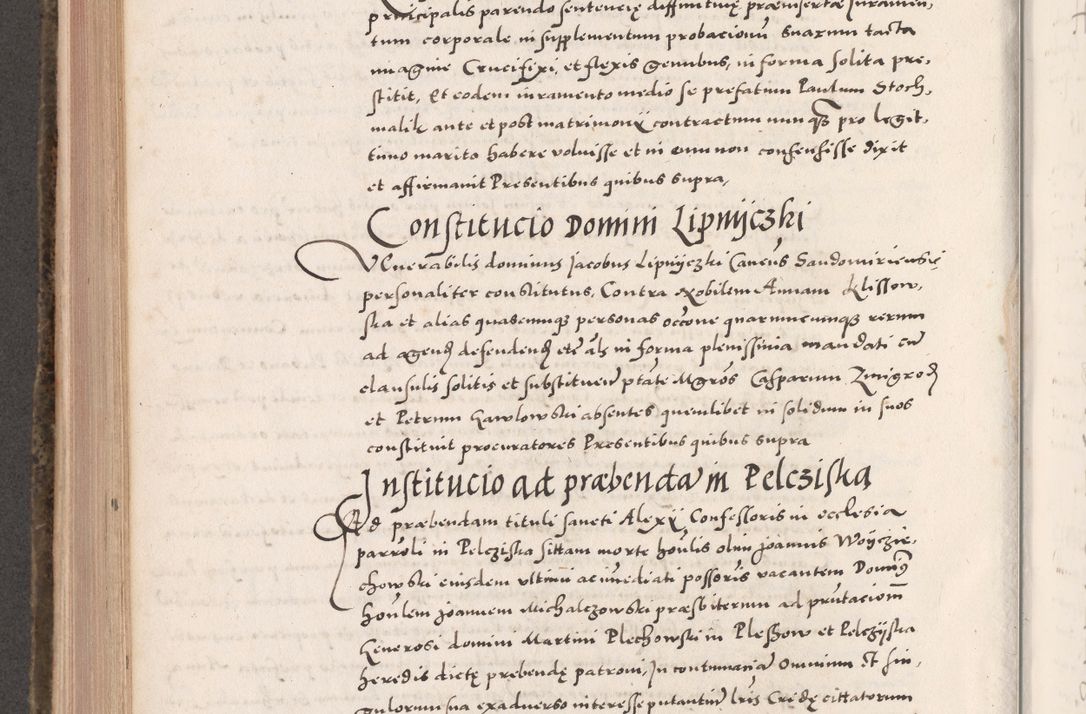 principalis parendo sententię diffinitivę præinsertæ iuramen,
tum corporale in supplementum probacionū suarum tacta
imagine Crucifixi, et flexis genibus, in forma solita pre,
stitit, Et eodem iuramento medio se prefatum Paulum Stoch,
malik ante et post matrimonij contractum nunqȝ pro legit,
timo marito habere voluisse et in eum non consensisse dixit
et affirmavit Presentibus quibus supra,
Constitucio Domini Lipnijczki
VEnerabilis dominus Jacobus Lipnijczki Canēus Sandomiriensis
personaliter constitutus, Contra Nobilem Annam Klissow,
ska et alias quascunqȝ personas occōne quarumcunqȝ rerum
ad agend defendend etc̄ als in forma plenissima mandati cū
clausulis solitis et substituen ptāte Mgros Casparum Zmigrod
et Petrum Gawlowski absentes quemlibet in solidum in suos
constituit procuratores Presentibus quibus supra
Institucio ad præbendam in Pelcziska
AD præbendam tituli sancti Alexij Confessoris in ecclesia
parrōli in Pelcziska sittam morte hōūlis olim Joannis Woijczie,
chowski eiusdem ultimi ac immediati possōris vacantem Dominus
hōūlem Joannem Michalczowski præsbiterum ad pn̄tacionem
Generosi domini Martini Plechowski in Pleschow et Pelczijska
heredis dictę prebendę patroni, In contumaciā omnium et sin,
gulorum sua exadverso interesse putantiū lrīs Cridę cittatorum